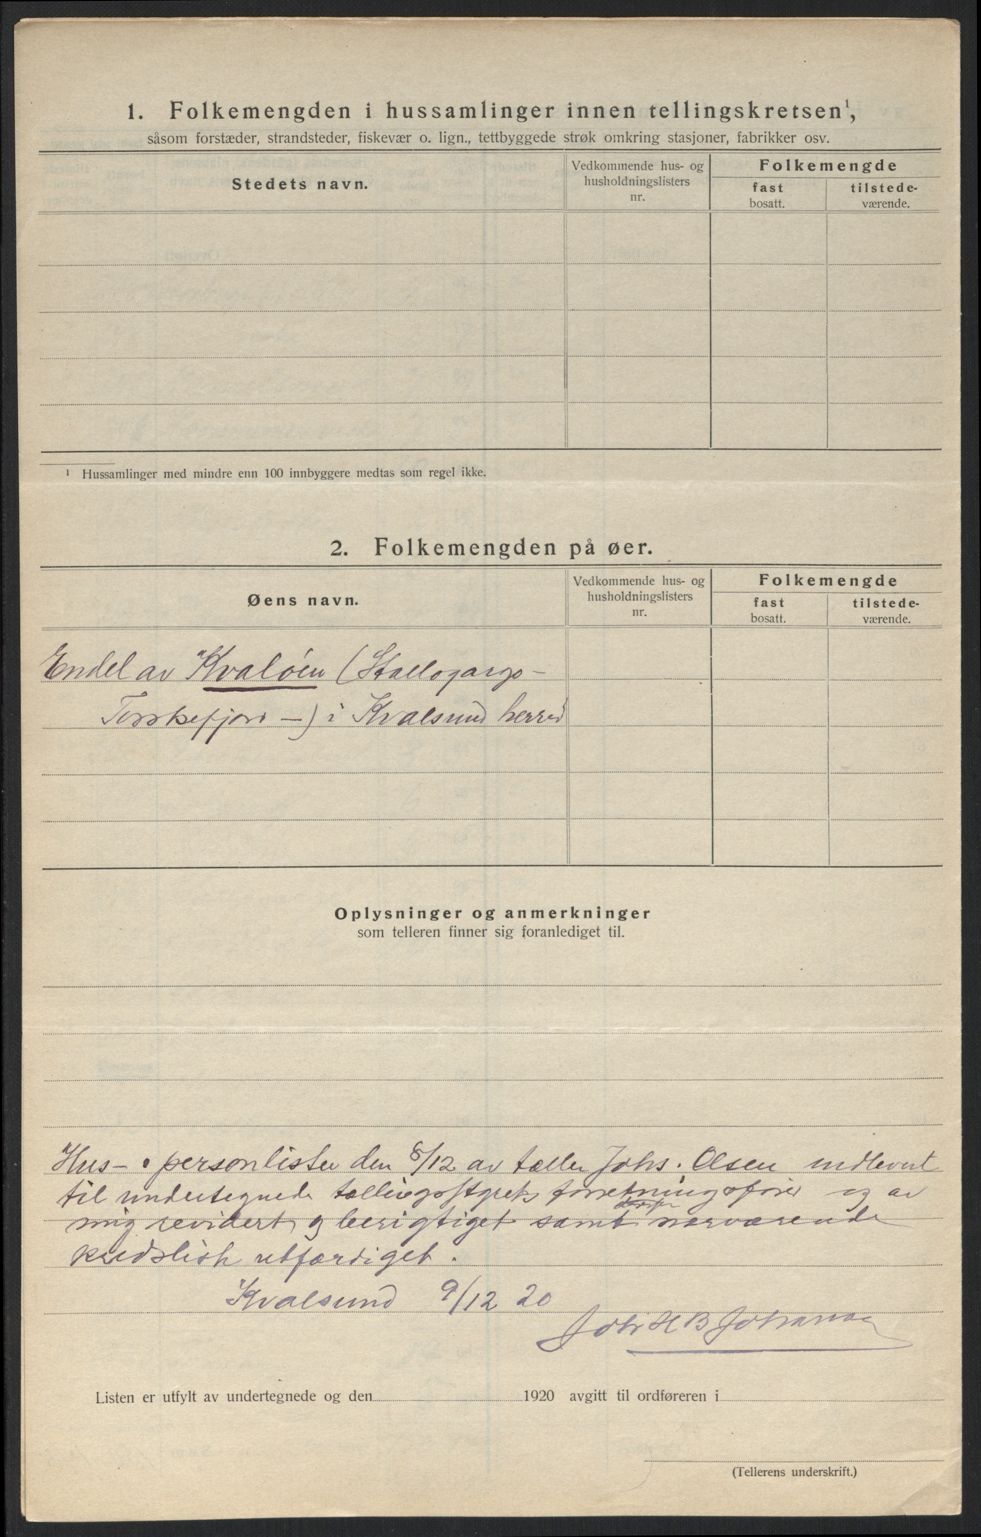 1. Folkemengden i hussamlinger innen tellingskretsen¹,
såsom forstæder, strandsteder, fiskevær o. lign., tettbyggede strøk omkring stasjoner, fabrikker osv.
Stedets navn.
Vedkommende hus- og
husholdningslisters
nr.
Folkemengde
fast
bosatt.
tilstede-
værende.
¹ Hussamlinger med mindre enn 100 innbyggere medtas som regel ikke.
2. Folkemengden på øer.
Øens navn.
Vedkommende hus- og
husholdningslisters
nr.
Folkemengde
fast
bosatt.
tilstede-
værende.
Endel av Kvaløen (Stallogargo-
Torskefjord —) i Kvalsund herred
Oplysninger og anmerkninger
som telleren finner sig foranlediget til.
Hus- o personlister den 8/12 av tæller Johs. Olsen indlevert
til undertegnede tællingsstyrets forretningsfører og av
mig revidert og berigtiget samt nærværende
kredsliste utfærdiget.
Kvalsund 9/12 20
Johs H B Johansen
Listen er utfylt av undertegnede og den 1920 avgitt til ordføreren i
(Tellerens underskrift.)